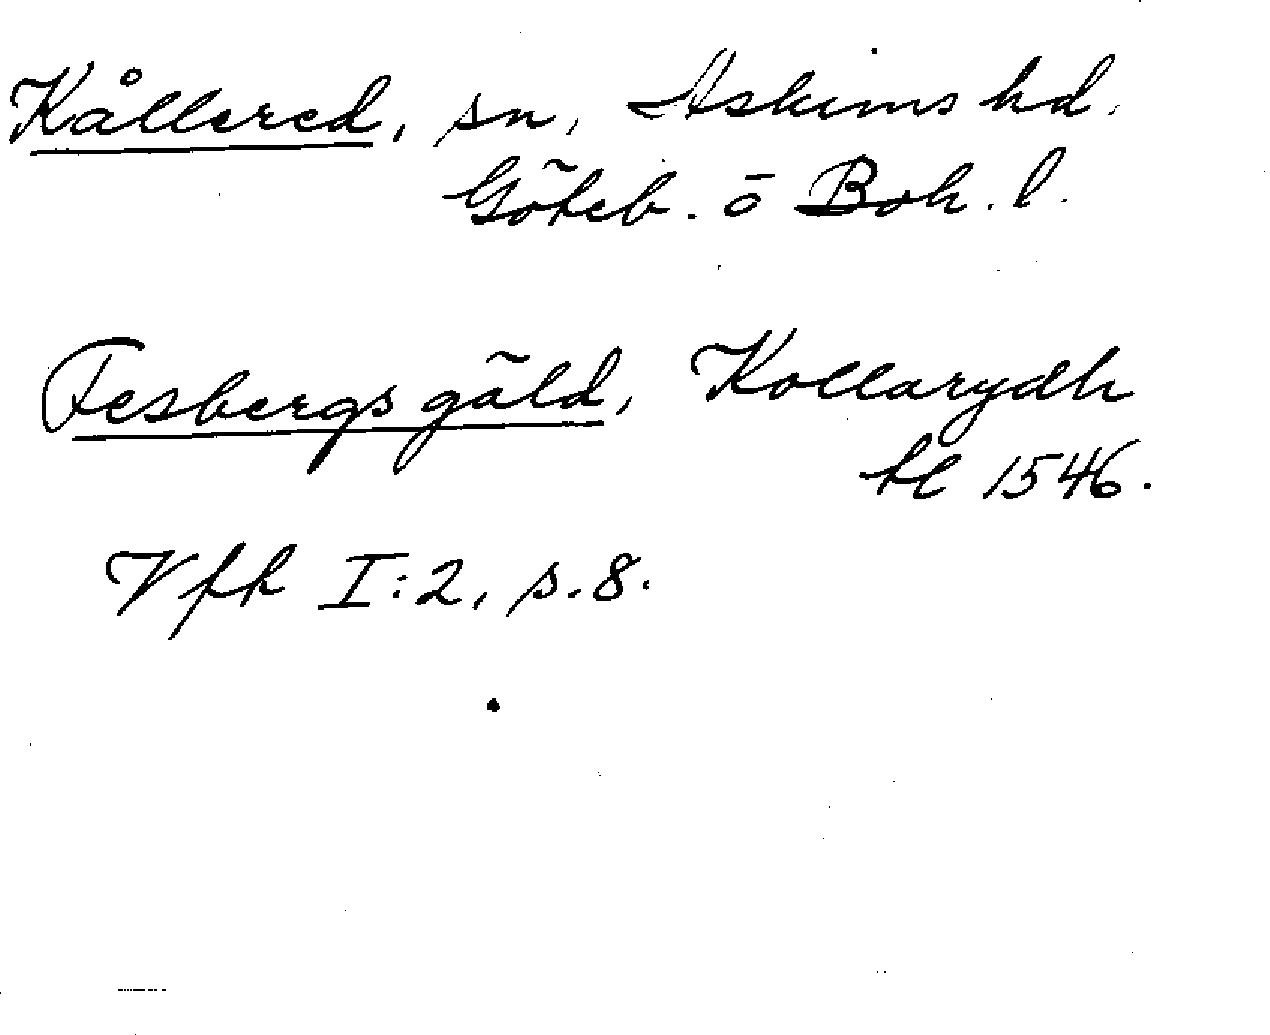 Kållered, sn, Askims hd.
Göteb. ō Boh. l.
Fesbergs gäld, Kollarydh
kl 1546.
Vfk I:2, s. 8.